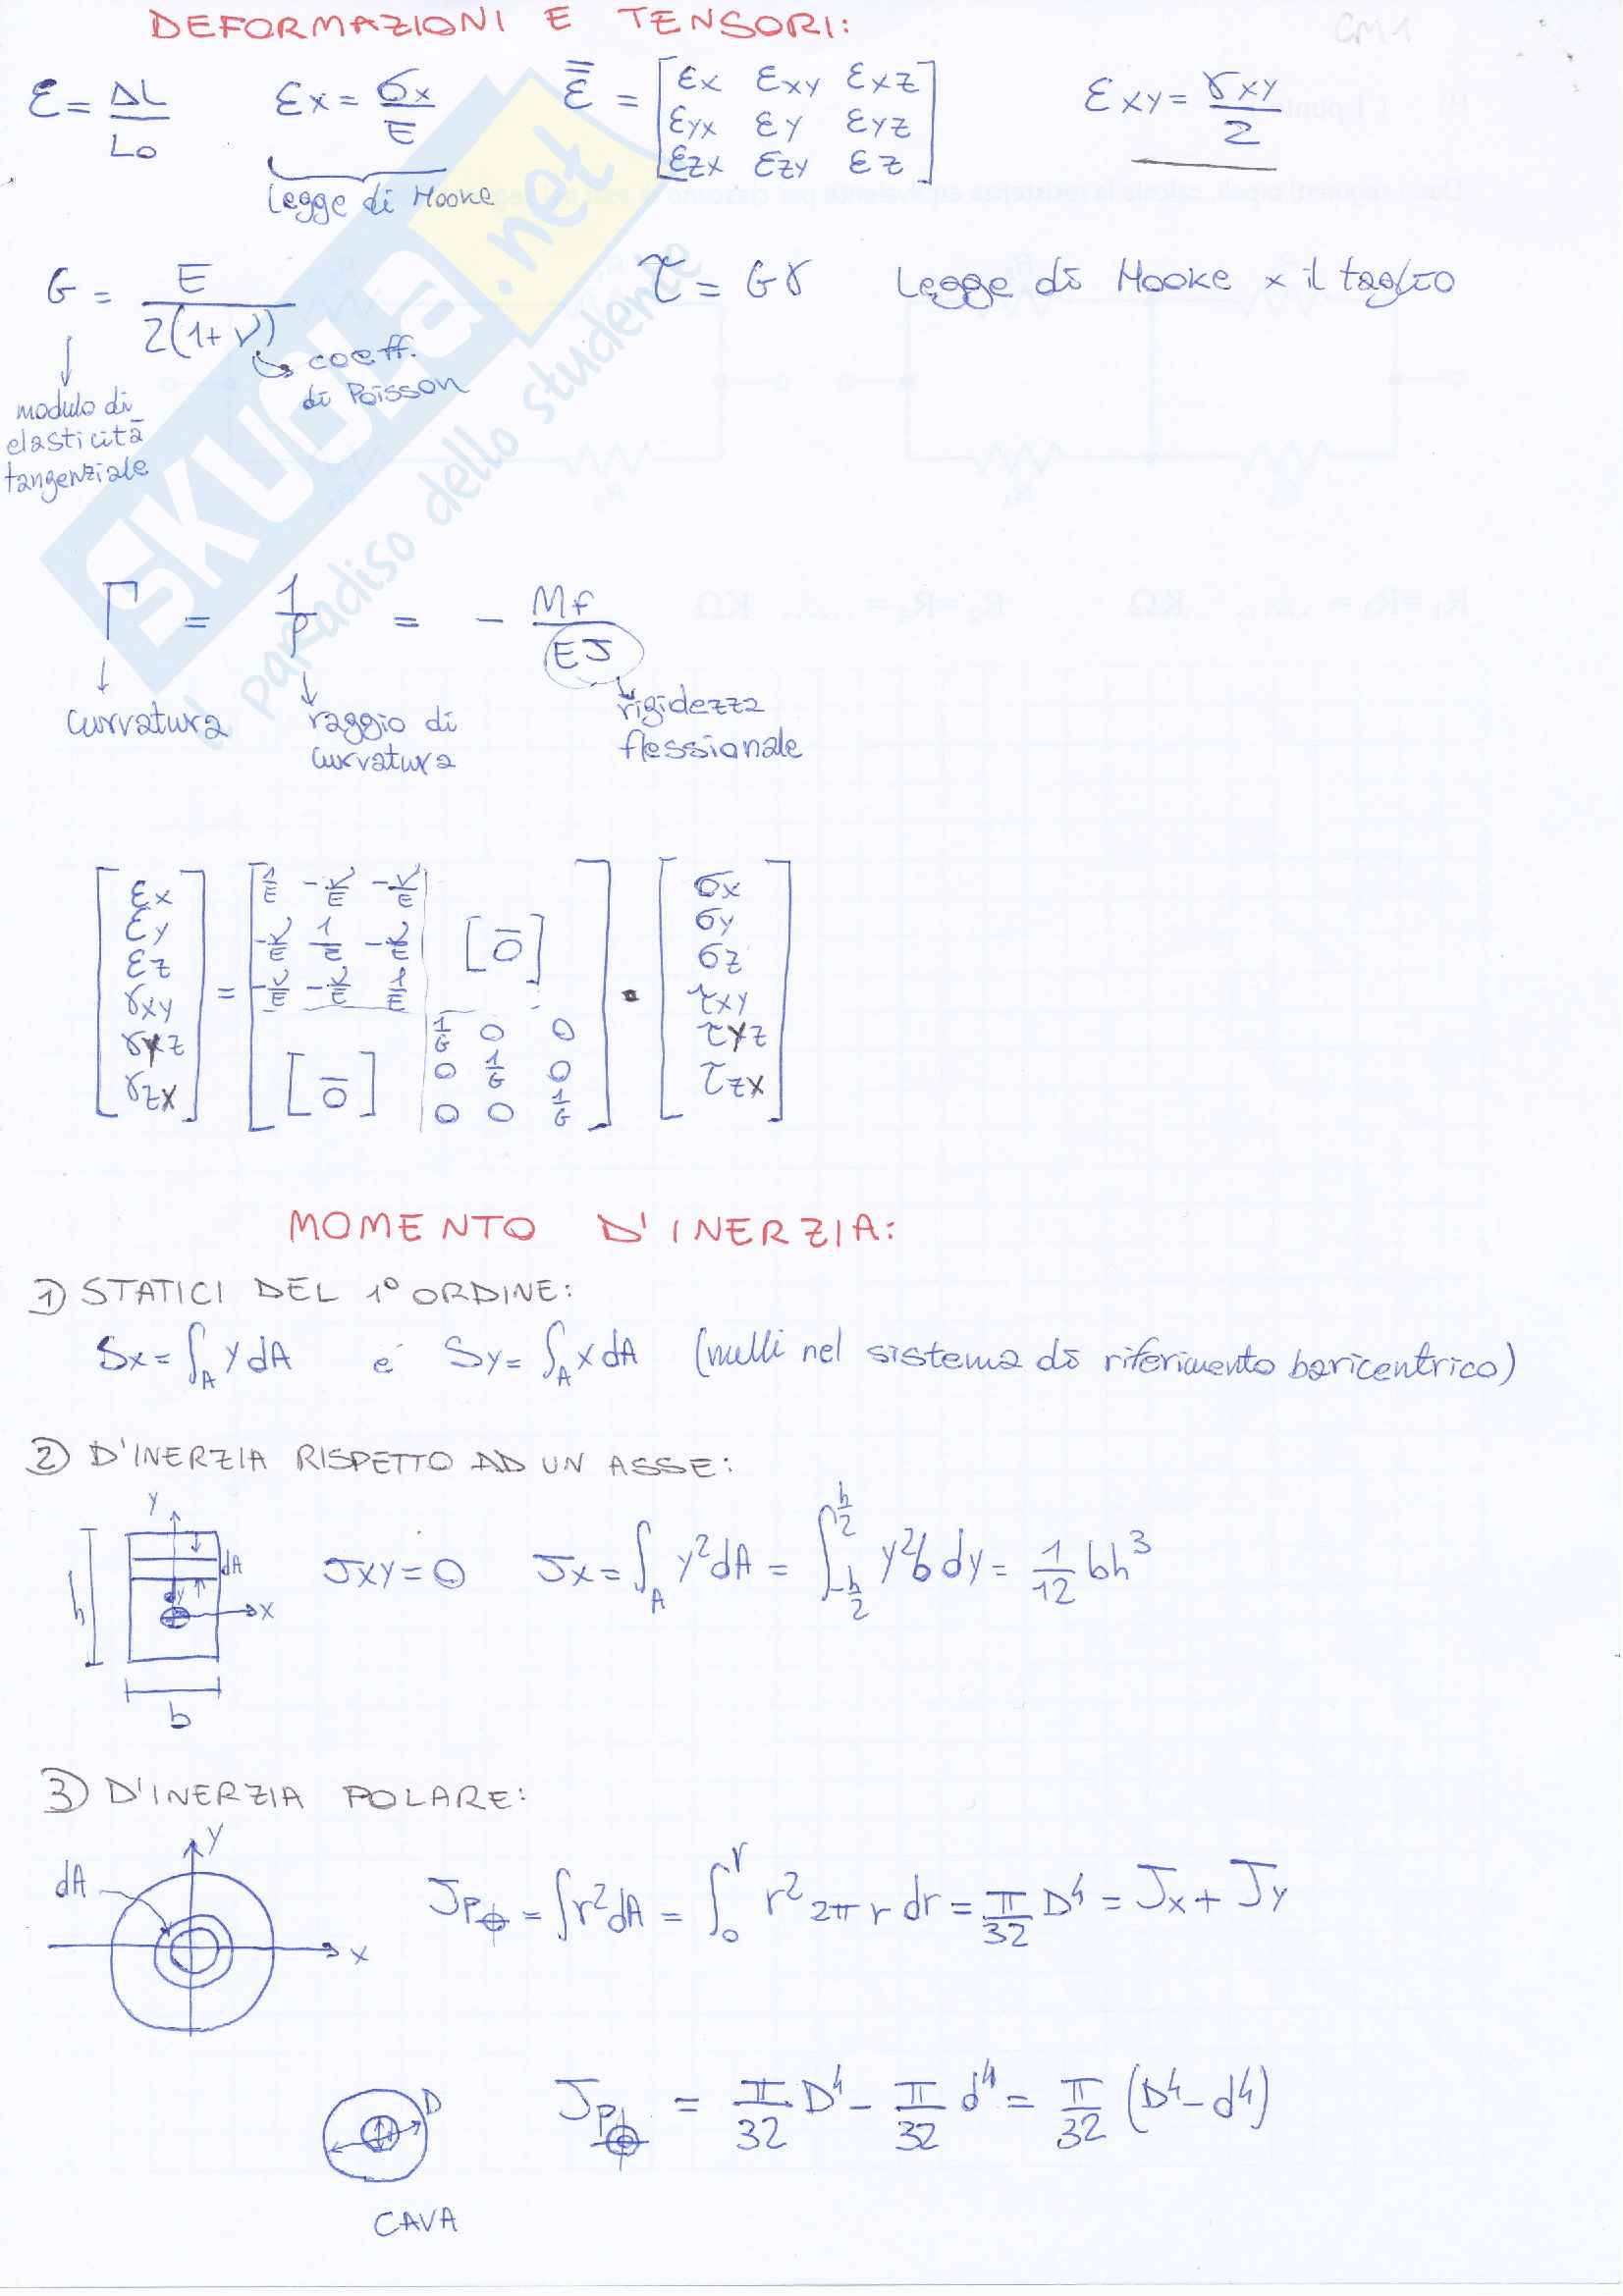 DEFORMAZIONI E TENSORI:
CM1
ε = ΔL/L0   εx = σx/E   ε̿ = [εx εxy εxz; εyx εy εyz; εzx εzy εz]   εxy = γxy/2
legge di Hooke
G = E/2(1+ν)   τ = Gγ   Legge di Hooke x il taglio
coeff. di Poisson
modulo di elasticità tangenziale
Γ = 1/ρ = - Mf/EJ
curvatura   raggio di curvatura   rigidezza flessionale
[εx; εy; εz; γxy; γyz; γzx] = [1/E -ν/E -ν/E [0̄]; -ν/E 1/E -ν/E; -ν/E -ν/E 1/E; [0̄] 1/G 0 0; 0 1/G 0; 0 0 1/G] · [σx; σy; σz; τxy; τyz; τzx]
MOMENTO D'INERZIA:
1) STATICI DEL 1° ORDINE:
Sx = ∫A y dA   e   Sy = ∫A x dA   (nulli nel sistema di riferimento baricentrico)
2) D'INERZIA RISPETTO AD UN ASSE:
y   dA   dy   x   h   b
Jxy = 0   Jx = ∫A y² dA = ∫-h/2 h/2 y² b dy = 1/12 bh³
3) D'INERZIA POLARE:
y   dA   x
Jp = ∫r² dA = ∫0 r r² 2π r dr = π/32 D⁴ = Jx + Jy
D
Jp = π/32 D⁴ - π/32 d⁴ = π/32 (D⁴ - d⁴)
CAVA
SKUOLA.net
il paradiso dello studente